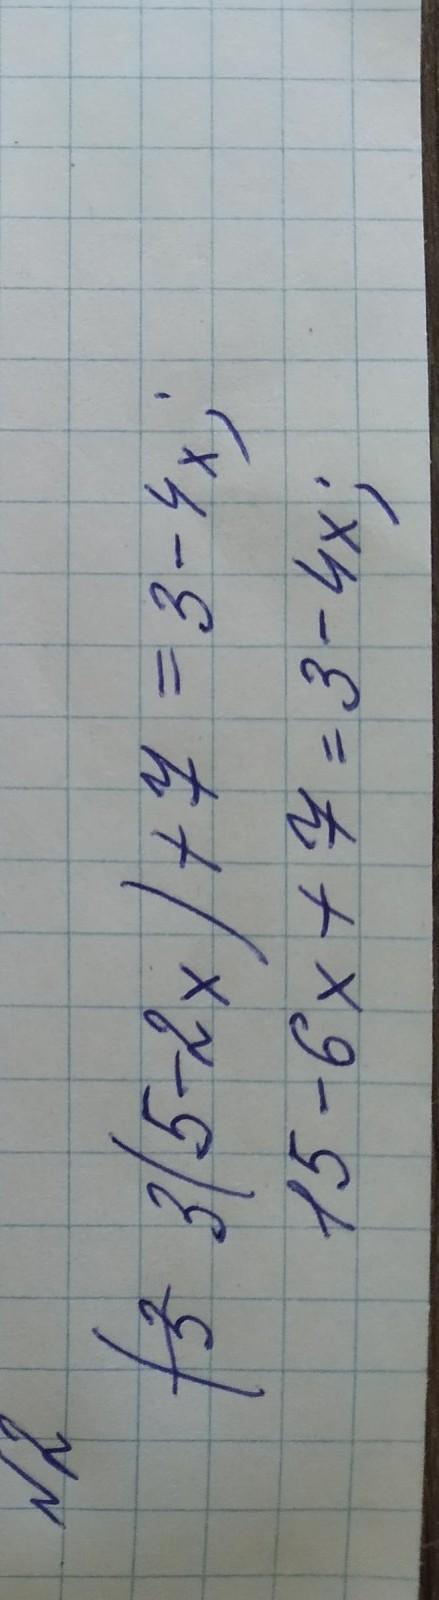 №2
3(5-2x)+7=3-4x;
15-6x+7=3-4x;